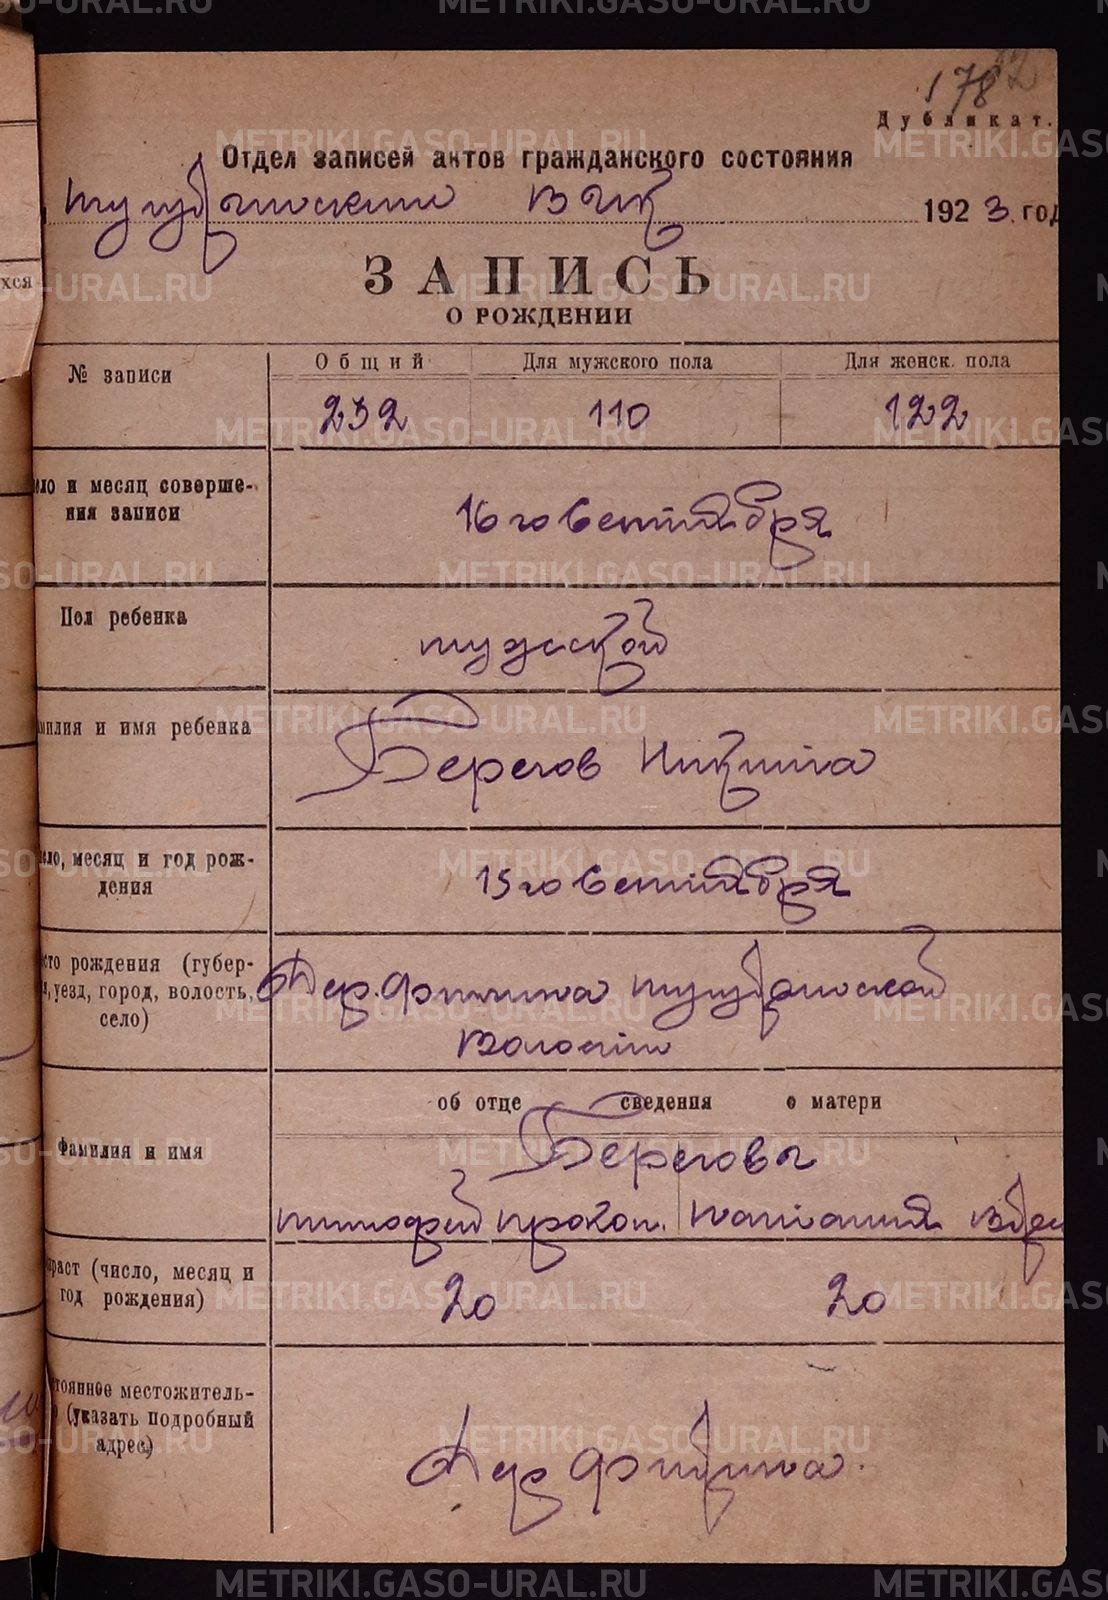 178
Дубликат.
Отдел записей актов гражданского состояния
ВИК 1923 год
ЗАПИСЬ
О РОЖДЕНИИ
№ записи
Общий Для мужского пола Для женск. пола
232 110 122
ло и месяц соверше-
ния записи
16го Сентября
Пол ребенка
мужской
милия и имя ребенка
Берегов Никита
ло, месяц и год рож-
дения
15го Сентября
сто рождения (губер-
уезд, город, волость,
село)
Дер.
Волости
об отце сведения о матери
Фамилия и имя
Береговы
Тимофей Прокоп. Наталия
раст (число, месяц и
год рождения)
20 20
тоянное местожитель-
(указать подробный
адрес)
Дер
хся
METRIKI.GASO-URAL.RU